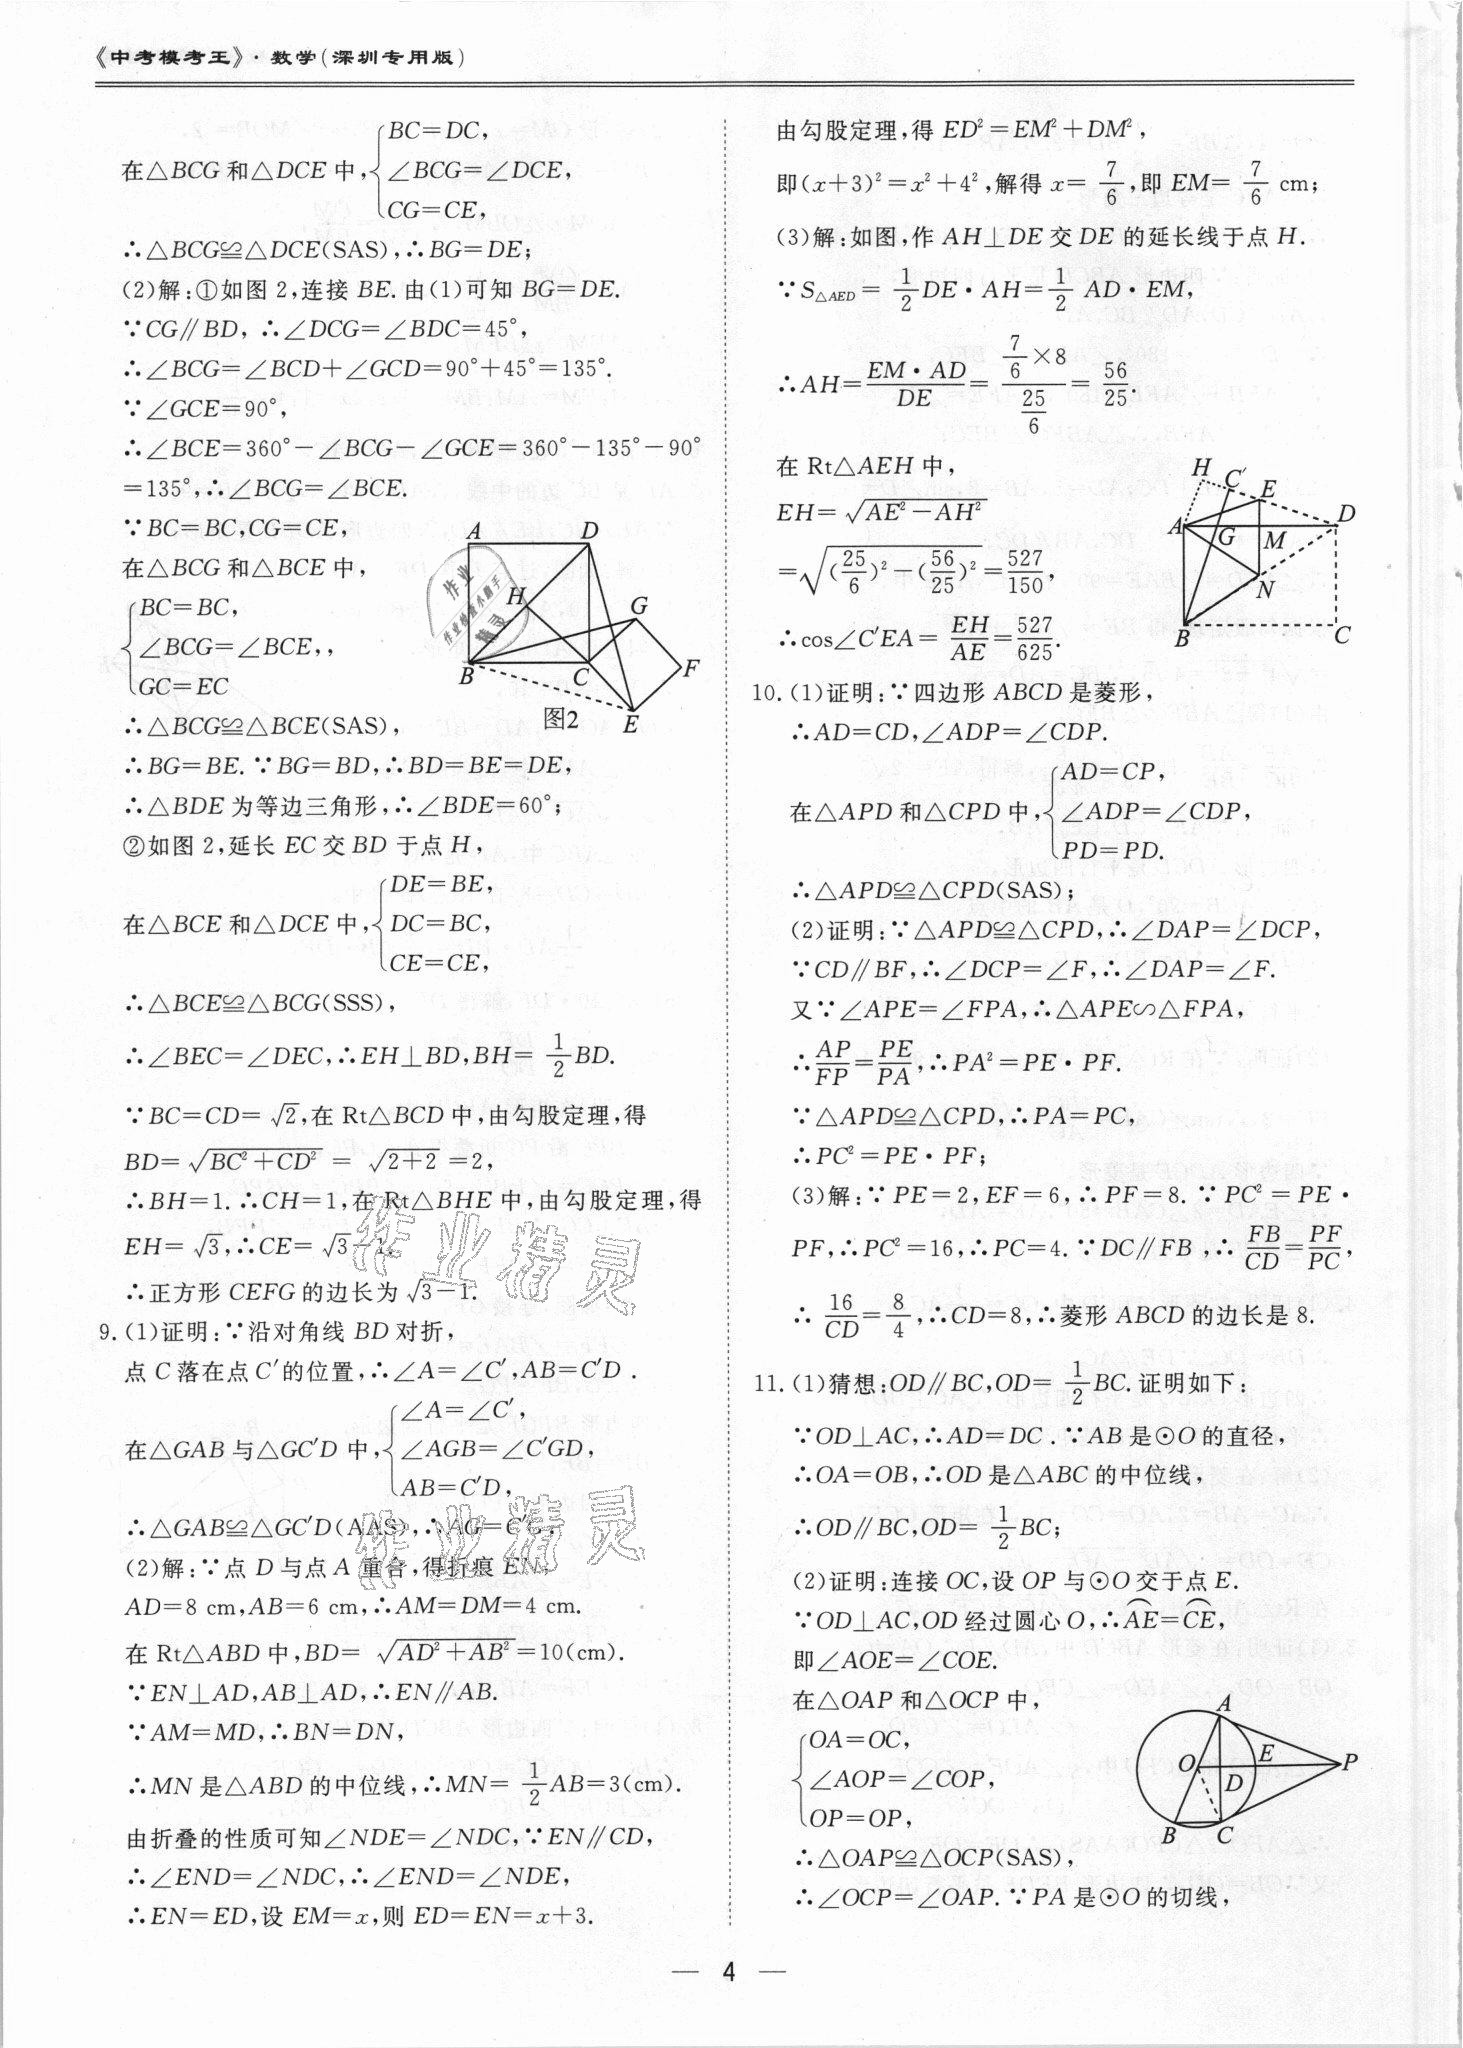 《中考模考王》·数学(深圳专用版)
BC=DC,
在△BCG和△DCE中,∠BCG=∠DCE,
CG=CE,
∴△BCG≌△DCE(SAS),∴BG=DE;
(2)解:①如图2,连接BE.由(1)可知BG=DE.
∵CG∥BD,∴∠DCG=∠BDC=45°,
∴∠BCG=∠BCD+∠GCD=90°+45°=135°.
∵∠GCE=90°,
∴∠BCE=360°-∠BCG-∠GCE=360°-135°-90°
=135°,∴∠BCG=∠BCE.
∵BC=BC,CG=CE,
在△BCG和△BCE中,
BC=BC,
∠BCG=∠BCE,,
GC=EC
∴△BCG≌△BCE(SAS),
∴BG=BE.∵BG=BD,∴BD=BE=DE,
∴△BDE为等边三角形,∴∠BDE=60°;
②如图2,延长EC交BD于点H,
DE=BE,
在△BCE和△DCE中,DC=BC,
CE=CE,
∴△BCE≌△BCG(SSS),
∴∠BEC=∠DEC,∴EH⊥BD,BH=1/2BD.
∵BC=CD=√2,在Rt△BCD中,由勾股定理,得
BD=√(BC²+CD²)=√(2+2)=2,
∴BH=1.∴CH=1,在Rt△BHE中,由勾股定理,得
EH=√3,∴CE=√3-1,
∴正方形CEFG的边长为√3-1.
A D H G B C F E
图2
9.(1)证明:∵沿对角线BD对折,
点C落在点C′的位置,∴∠A=∠C′,AB=C′D.
∠A=∠C′,
在△GAB与△GC′D中,∠AGB=∠C′GD,
AB=C′D,
∴△GAB≌△GC′D(AAS),∴AG=C′G;
(2)解:∵点D与点A重合,得折痕EN,
AD=8 cm,AB=6 cm,∴AM=DM=4 cm.
在Rt△ABD中,BD=√(AD²+AB²)=10(cm).
∵EN⊥AD,AB⊥AD,∴EN∥AB.
∵AM=MD,∴BN=DN,
∴MN是△ABD的中位线,∴MN=1/2AB=3(cm).
由折叠的性质可知∠NDE=∠NDC,∵EN∥CD,
∴∠END=∠NDC,∴∠END=∠NDE,
∴EN=ED,设EM=x,则ED=EN=x+3.
由勾股定理,得ED²=EM²+DM²,
即(x+3)²=x²+4²,解得x=7/6,即EM=7/6 cm;
(3)解:如图,作AH⊥DE交DE的延长线于点H.
∵S△AED=1/2DE·AH=1/2AD·EM,
∴AH=(EM·AD)/DE=(7/6×8)/(25/6)=56/25.
在Rt△AEH中,
EH=√(AE²-AH²)
=√((25/6)²-(56/25)²)=527/150,
∴cos∠C′EA=EH/AE=527/625.
H C′ E A G M D N B C
10.(1)证明:∵四边形ABCD是菱形,
∴AD=CD,∠ADP=∠CDP.
AD=CP,
在△APD和△CPD中,∠ADP=∠CDP,
PD=PD.
∴△APD≌△CPD(SAS);
(2)证明:∵△APD≌△CPD,∴∠DAP=∠DCP,
∵CD∥BF,∴∠DCP=∠F,∴∠DAP=∠F.
又∵∠APE=∠FPA,∴△APE∽△FPA,
∴AP/FP=PE/PA,∴PA²=PE·PF.
∵△APD≌△CPD,∴PA=PC,
∴PC²=PE·PF;
(3)解:∵PE=2,EF=6,∴PF=8.∵PC²=PE·
PF,∴PC²=16,∴PC=4.∵DC∥FB,∴FB/CD=PF/PC,
∴16/CD=8/4,∴CD=8,∴菱形ABCD的边长是8.
11.(1)猜想:OD∥BC,OD=1/2BC.证明如下:
∵OD⊥AC,∴AD=DC.∵AB是⊙O的直径,
∴OA=OB,∴OD是△ABC的中位线,
∴OD∥BC,OD=1/2BC;
(2)证明:连接OC,设OP与⊙O交于点E.
∵OD⊥AC,OD经过圆心O,∴A͡E=C͡E,
即∠AOE=∠COE.
在△OAP和△OCP中,
OA=OC,
∠AOP=∠COP,
OP=OP,
∴△OAP≌△OCP(SAS),
∴∠OCP=∠OAP.∵PA是⊙O的切线,
A O E D P B C
— 4 —
作业精灵
作业精灵
作业
作业检查小助手
精灵